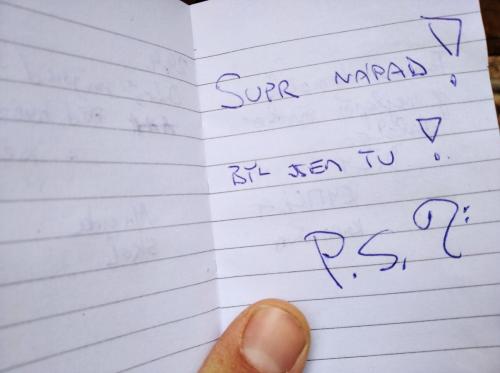 SUPR NÁPAD!
BYL JSEM TU!
P.S.